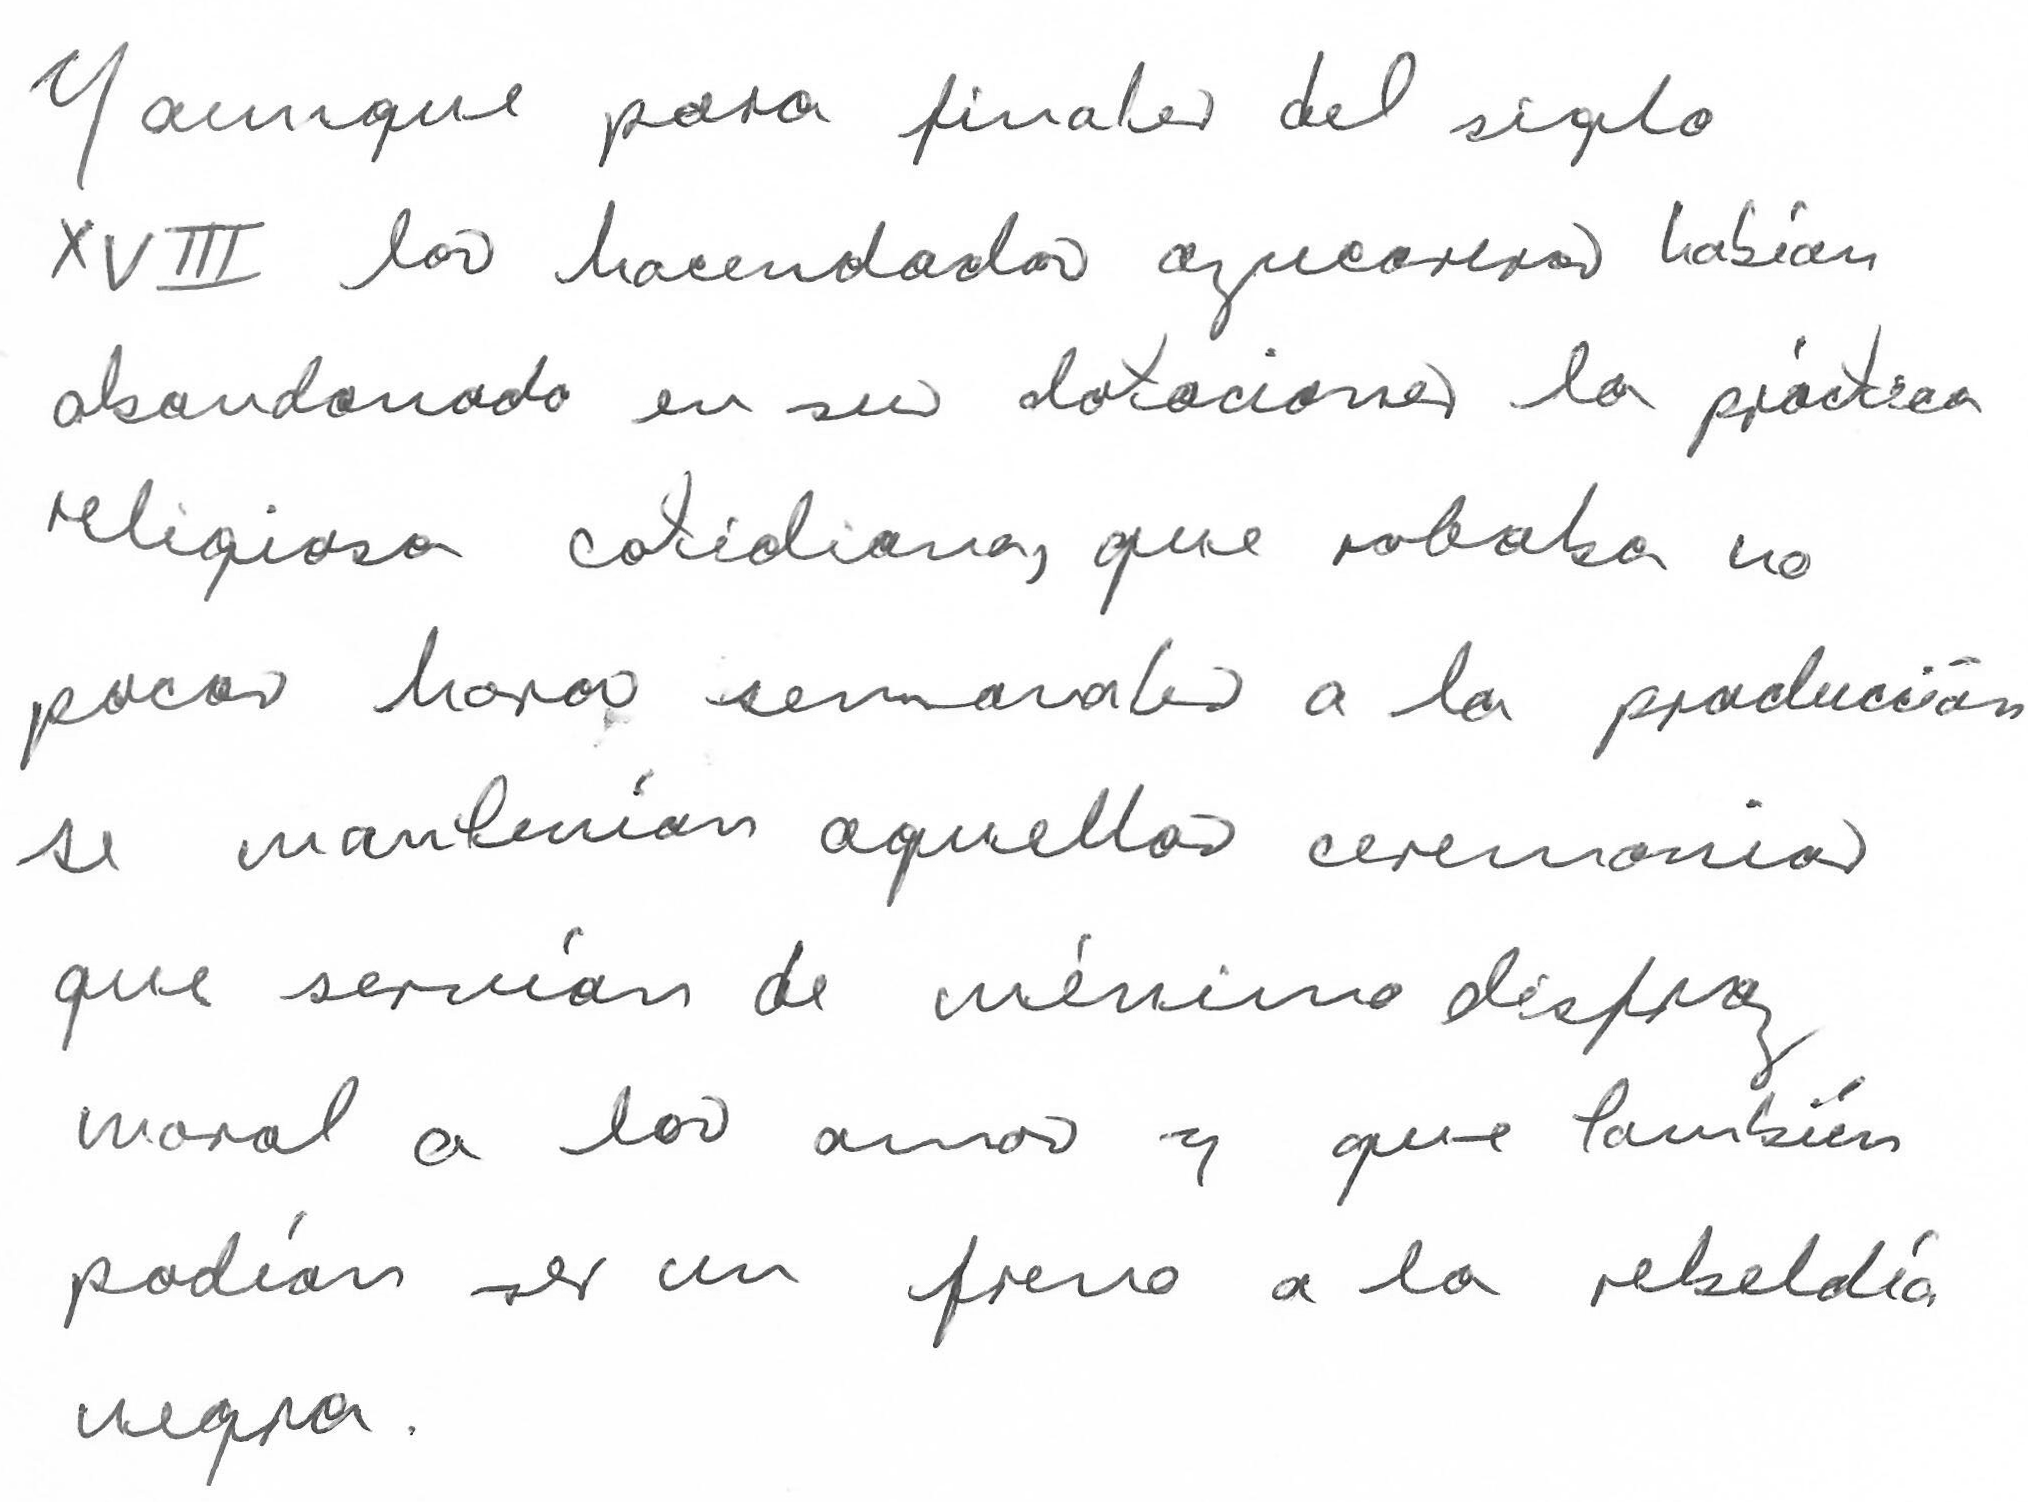 Y aunque para finales del siglo
XVIII los hacendados azucareros habían
abandonado en sus dotaciones la práctica
religiosa cotidiana, que robaba no
pocas horas semanales a la producción
se mantenían aquellas ceremonias
que servían de mínimo disfraz
moral a los amos y que también
podían ser un freno a la rebeldía
negra.